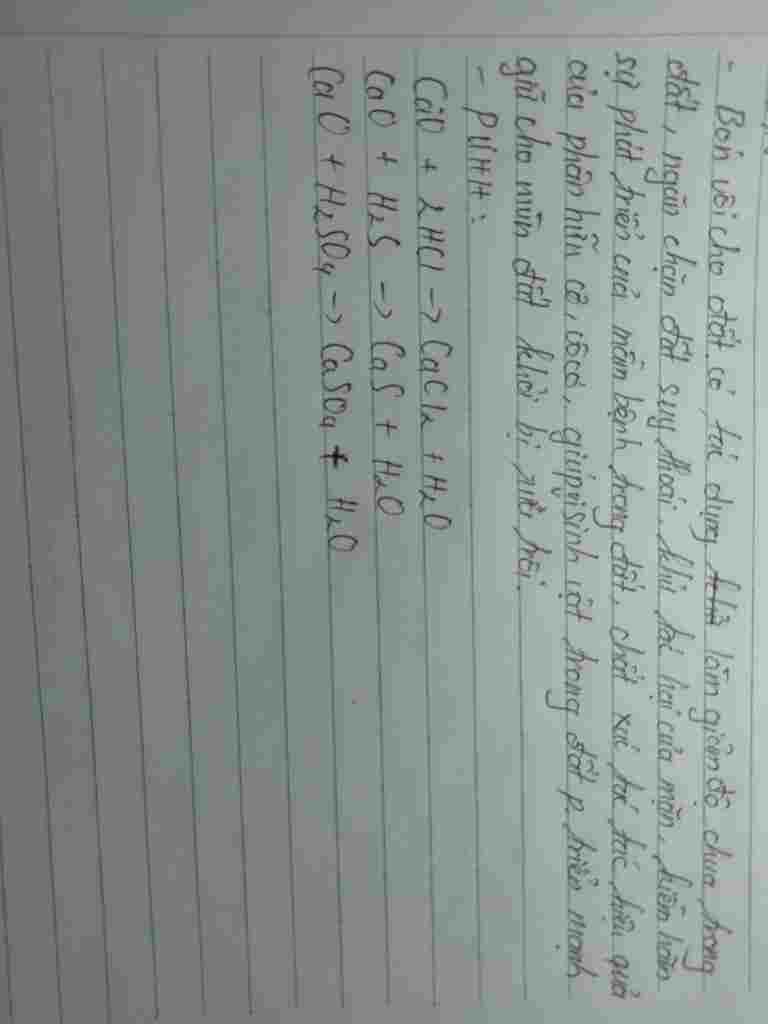 - Bón vôi cho đất có tác dụng làm giảm độ chua trong
đất, ngăn chặn đất suy thoái, khử tác hại của mặn, kiềm hãm
sự phát triển của mầm bệnh trong đất, chất xúc tác tác hiệu quả
của phân hữu cơ, vô cơ, giúp vi sinh vật trong đất p. triển mạnh
giữ cho mùn đất khỏi bị rửa trôi.
- PƯHH:
CaO + 2HCl -> CaCl₂ + H₂O
CaO + H₂S -> CaS + H₂O
CaO + H₂SO₄ -> CaSO₄ + H₂O